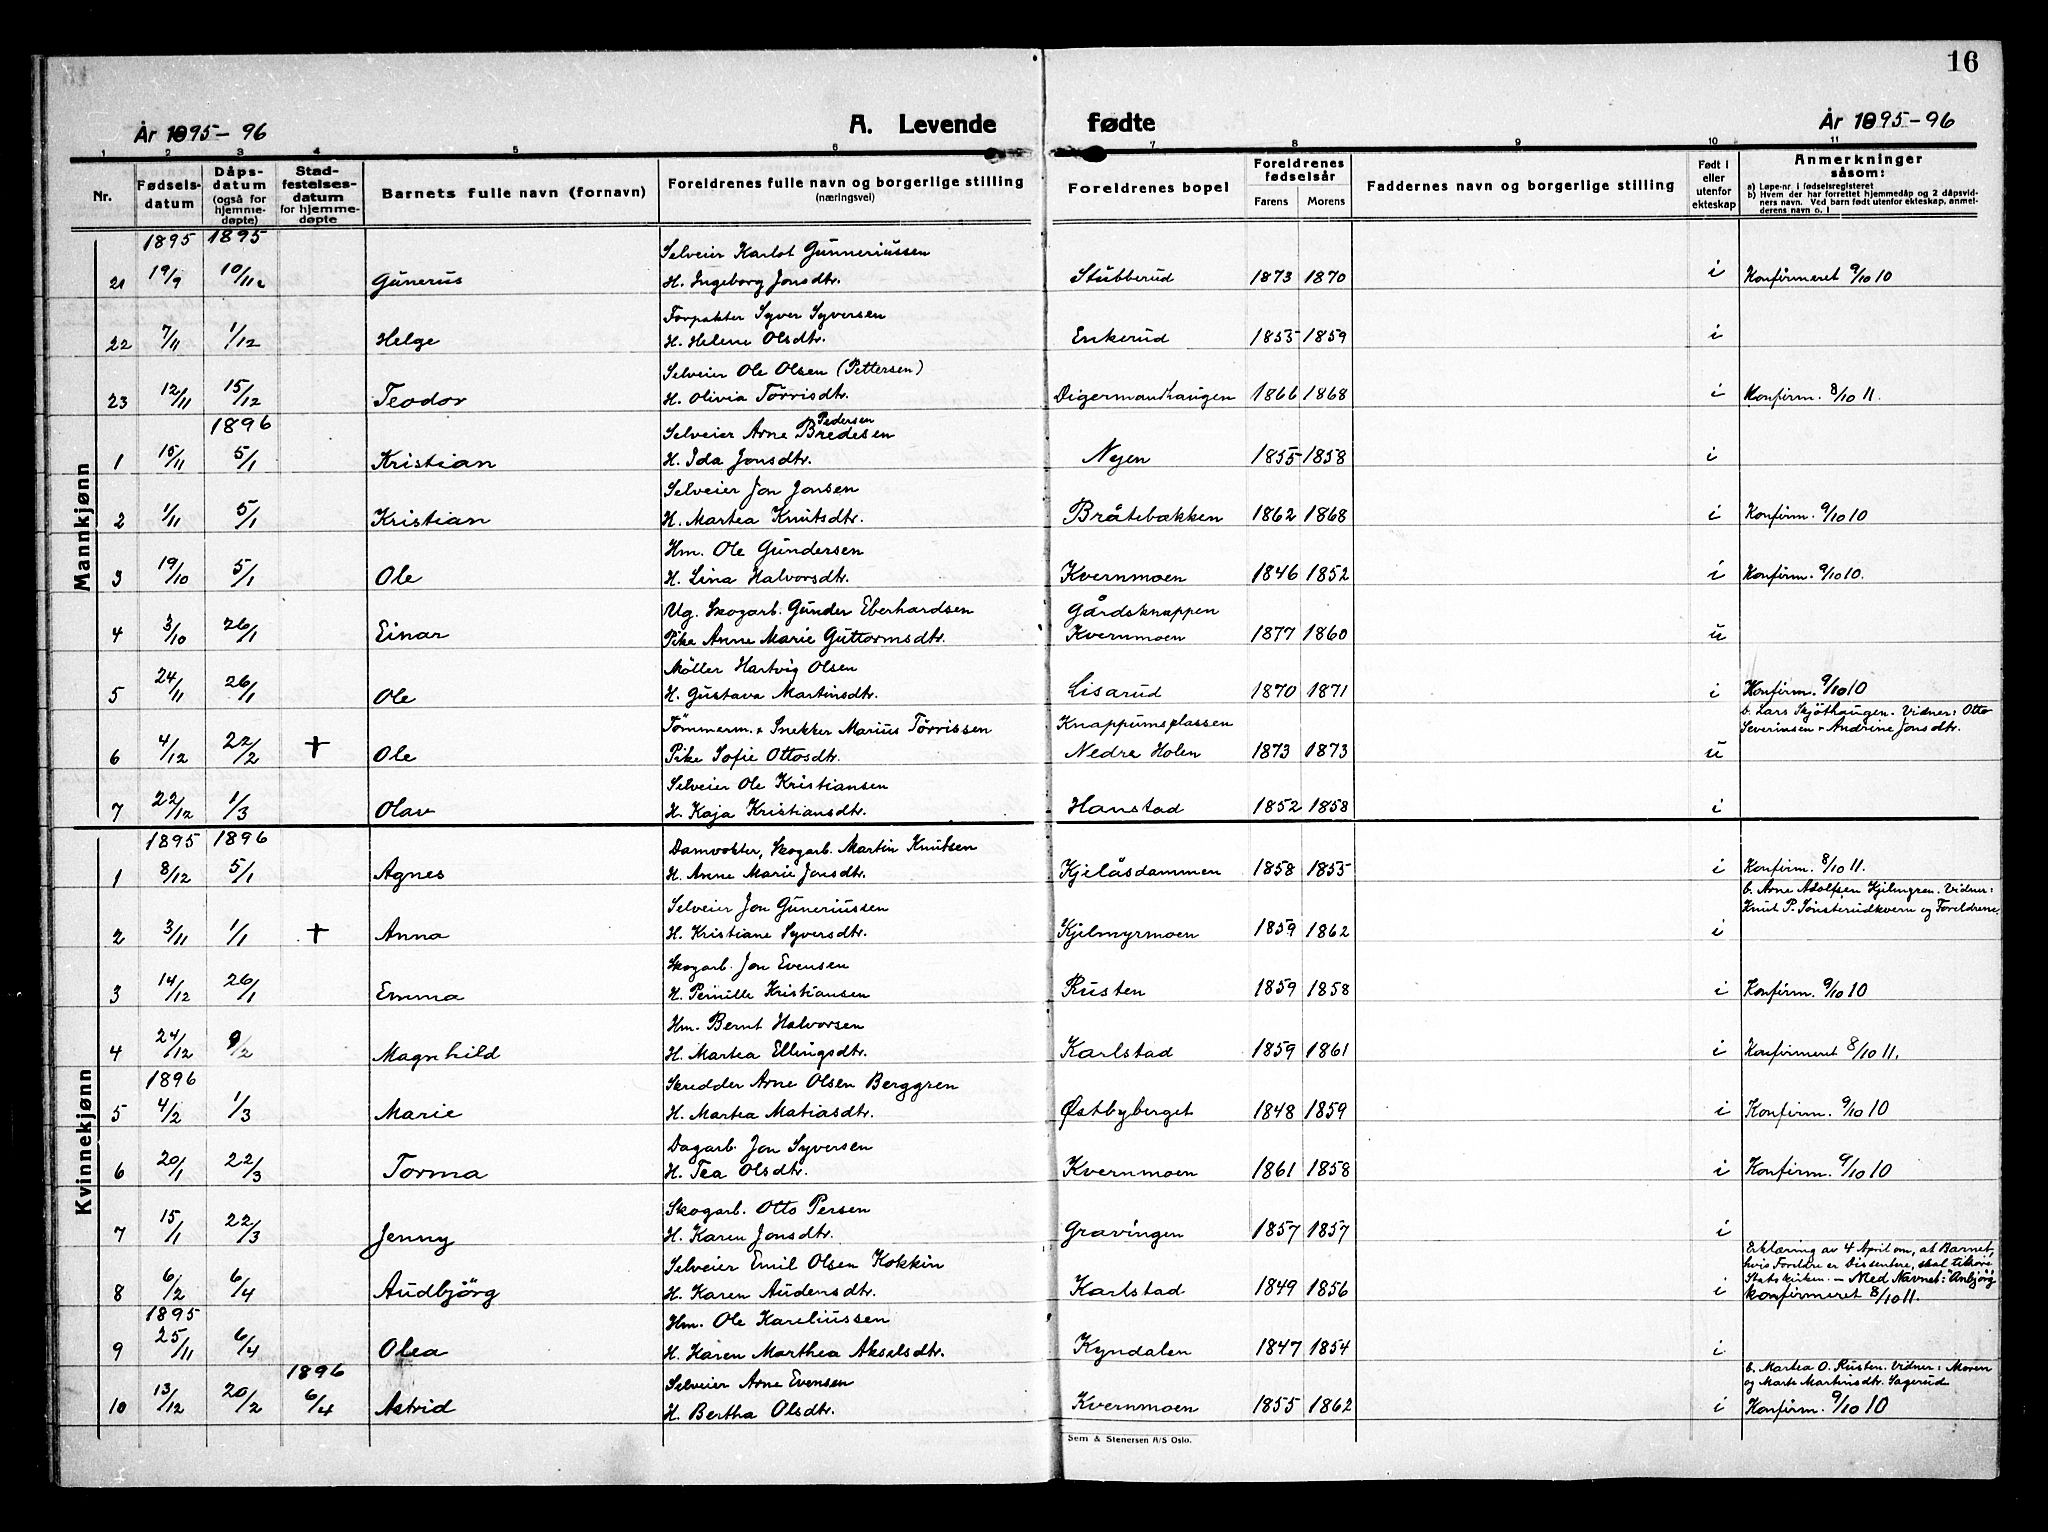 16
År 1895-96
A. Levende fødte
År 1895-96
1 2 3 4 5 6 7 8 9 10 11
Nr.
Fødsels-
datum
Dåps-
datum
(også for
hjemme-
døpte)
Stad-
festelses-
datum
for hjemme-
døpte
Barnets fulle navn (fornavn)
Foreldrenes fulle navn og borgerlige stilling
(næringsvei)
Foreldrenes bopel
Foreldrenes
fødselsår
Farens Morens
Faddernes navn og borgerlige stilling
Født i
eller
utenfor
ekteskap
Anmerkninger
såsom:
a) Løpe-nr. i fødselsregisteret
b) Hvem der har forrettet hjemmedåp og 2 dåpsvid-
ners navn. Ved barn født utenfor ekteskap, anmel-
derens navn o. l
Mannkjønn
1895 1895
Selveier Karlot Gunneriussen
21 19/9 10/11 Gunerus H. Ingeborg Jonsdtr. Stubberud 1873 1870 i Konfirmeret 9/10 10
Forpakter Syver Syversen
22 7/11 1/12 Helge H. Helene Olsdtr. Enkerud 1855 1859 i
Selveier Ole Olsen (Pettersen)
23 12/11 15/12 Teodor H. Olivia Torrisdtr. Digermandhaugen 1866 1868 i Konfirm. 8/10 11.
1896
Pedersen
Selveier Arne Bredesen
1 15/11 5/1 Kristian H. Ida Jonsdtr. Nyen 1855 1858 i
Selveier Jon Jonsen
2 1/11 5/1 Kristian H. Martea Knutsdtr. Bråtebakken 1862 1868 i Konfirm. 9/10 10
Hm. Ole Gundersen
3 19/10 5/1 Ole H. Lina Halvorsdtr. Kvernmoen 1846 1852 i Konfirm. 9/10 10.
Ug. Skogarb. Gunder Eberhardsen Gårdsknappen
4 3/10 26/1 Einar Pike Anne Marie Guttormsdtr. Kvernmoen 1877 1860 u
Møller Hartvig Olsen
5 24/11 26/1 Ole H. Gustava Martinsdtr. Lisarud 1870 1871 i Konfirm. 9/10 10
Tømmerm. + Snekker Marius Tørrissen Knappumsplassen b. Lars Skjøthaugen. Vidner: Otto
Severinsen + Andrine Jonsdtr.
6 4/12 22/2 + Ole Pike Sofie Ottosdtr. Nedre Holen 1873 1873 u
Selveier Ole Kristiansen
7 22/12 1/3 Olav H. Kaja Kristiansdtr. Hanstad 1852 1858 i
Kvinnekjønn
1895 1896
Damvokter, Skogarb. Martin Knutsen
1 8/12 5/1 Agnes H. Anne Marie Jonsdtr. Kjelåsdammen 1858 1855 i Konfirm. 8/10 11.
Selveier Jon Guneriussen b. Arne Adolfsen Kjelmyren. Vidner:
Knut P. Sønsterudkvern og Foreldrene.
2 3/11 1/1 + Anna H. Kristiane Syversdtr. Kjelmyrmoen 1859 1862 i
Skogarb. Jon Evensen
3 14/12 26/1 Emma H. Pernille Kristiansen Rusten 1859 1858 i Konfirm. 9/10 10
Hm. Bernt Halvorsen
4 24/12 9/2 Magnhild H. Martea Ellingsdtr. Karlstad 1859 1861 i Konfirmeret 8/10 11.
1896
Skredder Arne Olsen Berggren
5 4/2 1/3 Marie H. Martea Matiasdtr. Østbyberget 1848 1859 i Konfirm. 9/10 10
Dagarb. Jon Syversen
6 20/1 22/3 Torma H. Tea Olsdtr. Kvernmoen 1861 1858 i Konfirm. 9/10 10
Skogarb. Otto Persen
7 15/1 22/3 Jenny H. Karen Jonsdtr. Gravingen 1857 1857 i
Selveier Emil Olsen Kokkin Erklæring av 4 April om, at Barnet,
hvis Forldre er Dissentere, skal tilhøre
Statskirken. - Med Navnet: "Anbjørg"
8 6/2 6/4 Audbjörg H. Karen Audensdtr. Karlstad 1849 1856 i konfirmeret 8/10 11.
1895
Hm. Ole Kareliussen
9 25/11 6/4 Olea H. Karen Marthea Akselsdtr. Kyndalen 1847 1854 i
1896
Selveier Arne Evensen b. Martea O. Rusten. Vidner: Moren
og Marte Martinsdtr. Sagerud
10 13/12 20/2 6/4 Astrid H. Bertha Olsdtr. Kvernmoen 1855 1862 i Konfirm. 9/10 10
Sem & Stenersen A/S Oslo.